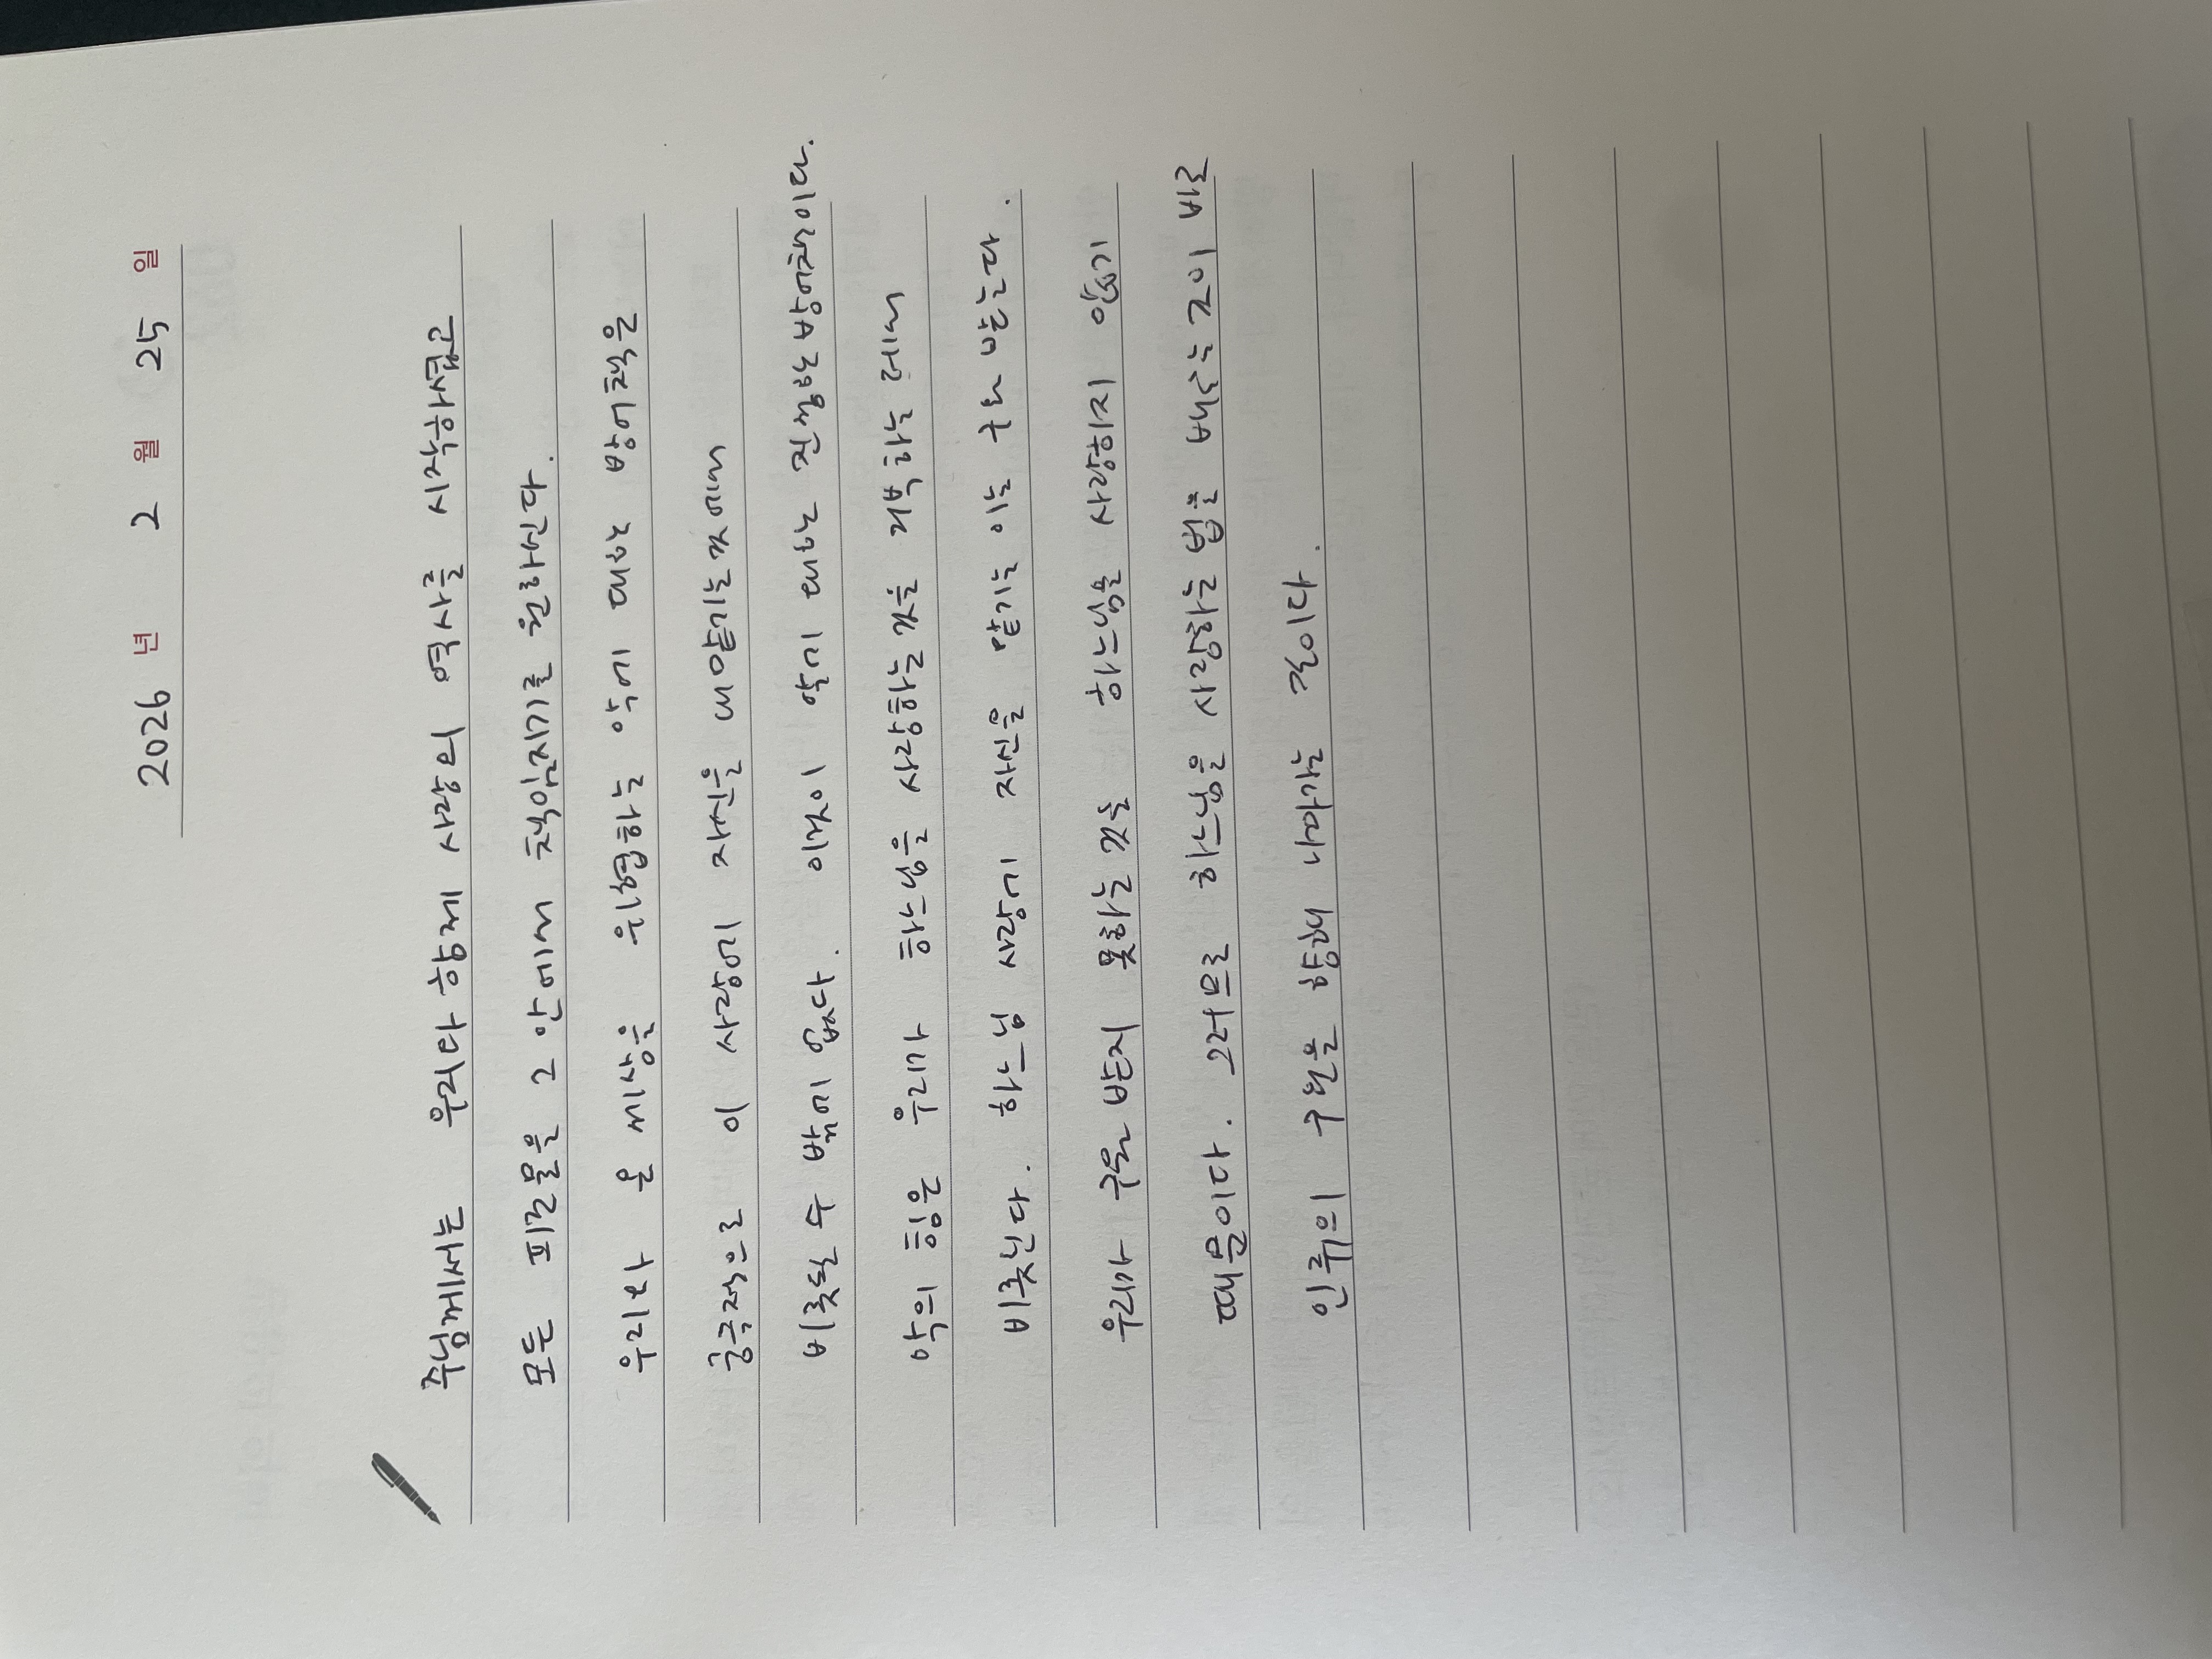 2026 년 2 월 25 일
주님께서는 우리와 함께 사랑의 역사를 시작하셨고
모든 피조물을 그 안에서 책임지기를 원하신다.
우리와 온 세상을 위협하는 악에 대한 방어책은
궁극적으로 이 사랑에 자신을 내맡기는 것에서
비롯될 수 밖에 없다. 이것이 악에 대한 진정한 방어책이다.
악의 힘은 우리가 하느님을 사랑하는 것을 거부하는 데서
비롯된다. 하느님 사랑에 자신을 맡기는 이는 구원 받는다.
우리가 구원 받지 못하는 것은 하느님을 사랑하지 않기
때문이다. 그러므로 하느님을 사랑하는 법을 배우는 것이 바로
인류의 구원을 향해 나아가는 길이다.